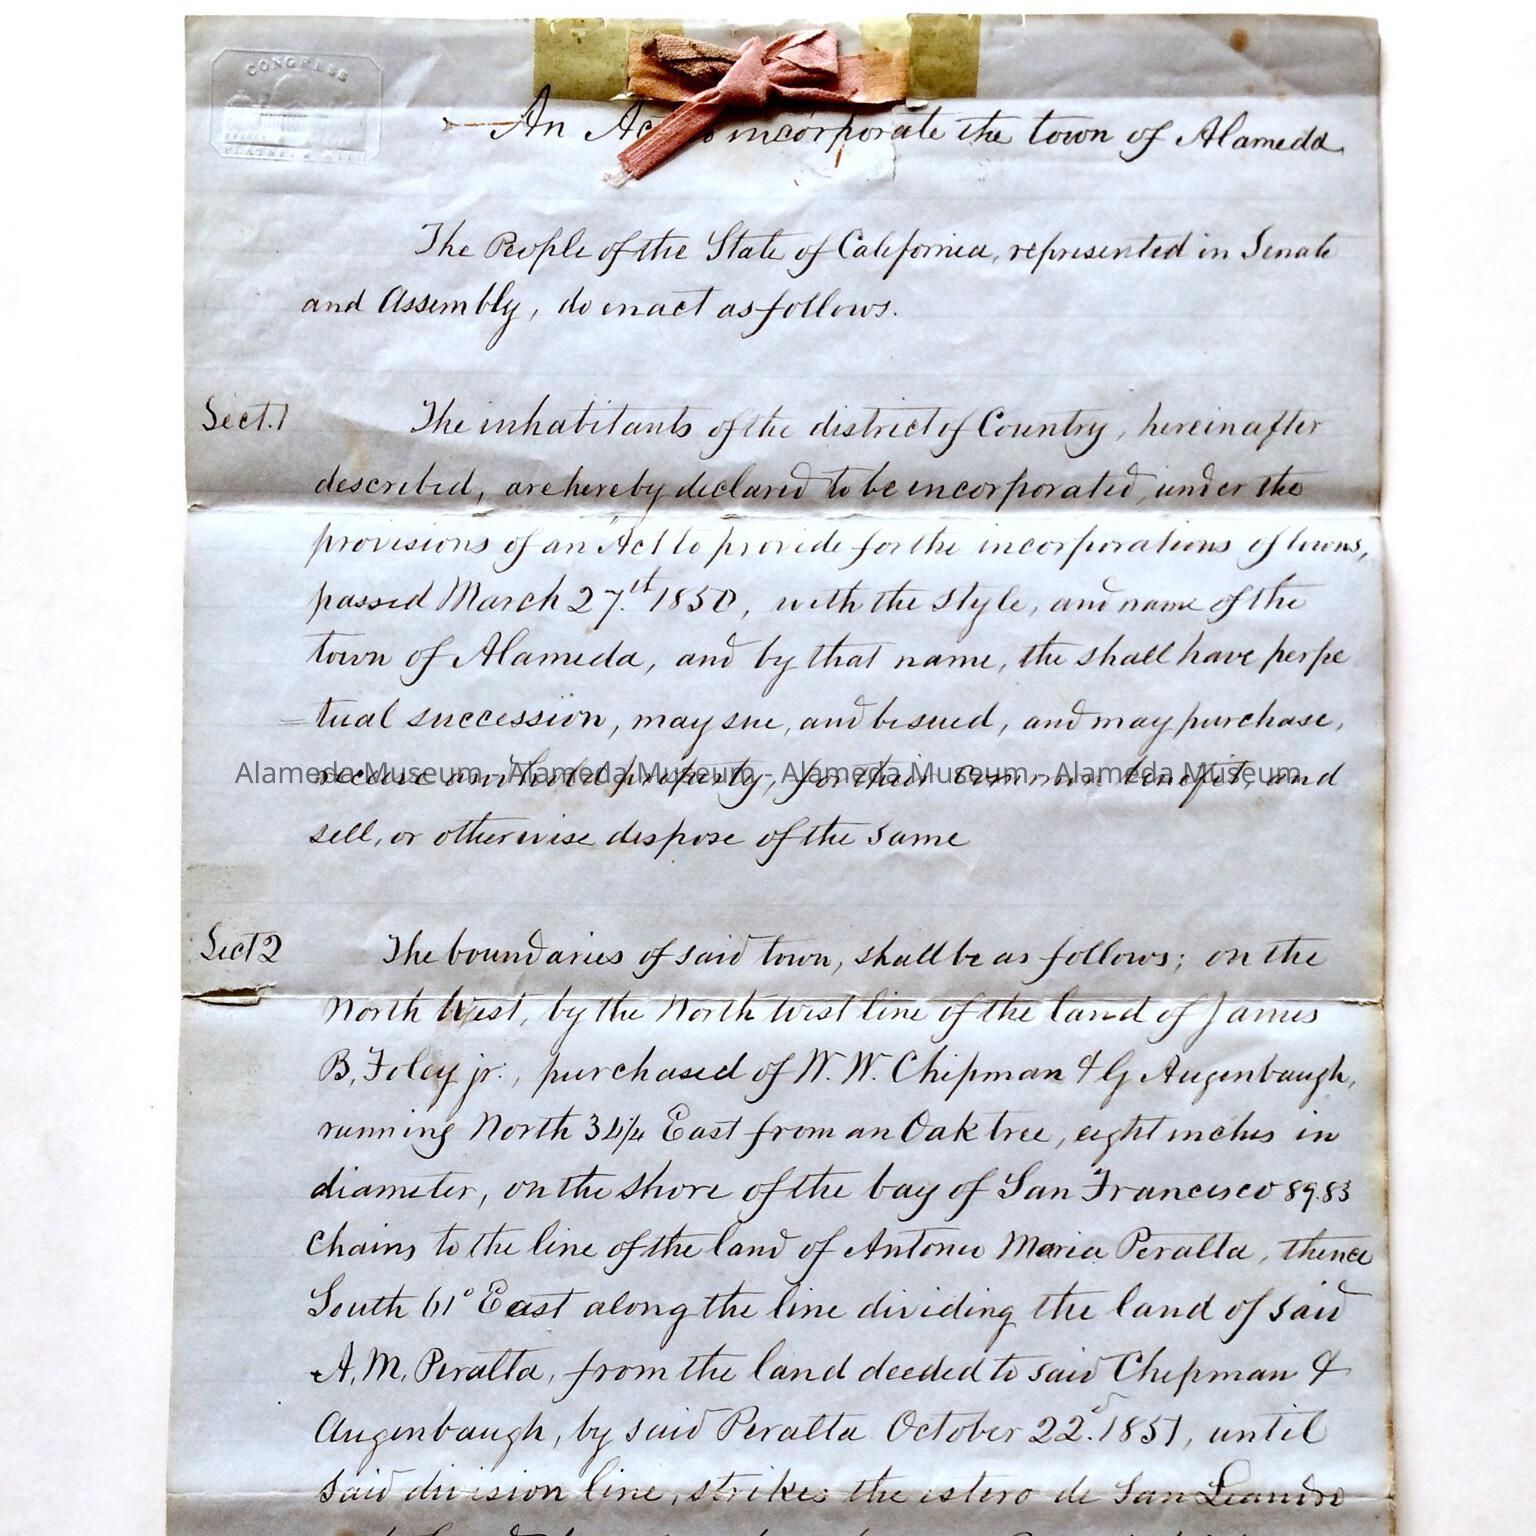 CONGRESS
An Ac incorporate the town of Alameda
The People of the State of California, represented in Senate
and Assembly, do enact as follows.
Sect. 1 The inhabitants of the district of Country, hereinafter
described, are hereby declared to be incorporated, under the
provisions of an Act to provide for the incorporations of towns,
passed March 27.th 1850, with the style, and name of the
town of Alameda, and by that name, the shall have perpe
=tual succession, may sue, and be sued, and may purchase,
receive and hold property, for their common benefit, and
Alameda Museum - Alameda Museum - Alameda Museum - Alameda Museum
sell, or otherwise dispose of the same
Sect 2 The boundaries of said town, shall be as follows; on the
North West, by the North West line of the land of James
B. Foley jr., purchased of W. W. Chipman & G Augenbaugh,
running North East from an Oak tree, eight inches in
diameter, on the shore of the bay of San Francisco 89.83
chains to the line of the land of Antonio Maria Peralta, thence
South 61° East along the line dividing the land of said
A. M. Peralta, from the land deeded to said Chipman &
Augenbaugh, by said Peralta October 22.d 1851, until
said division line, strikes the estero de San Leandro